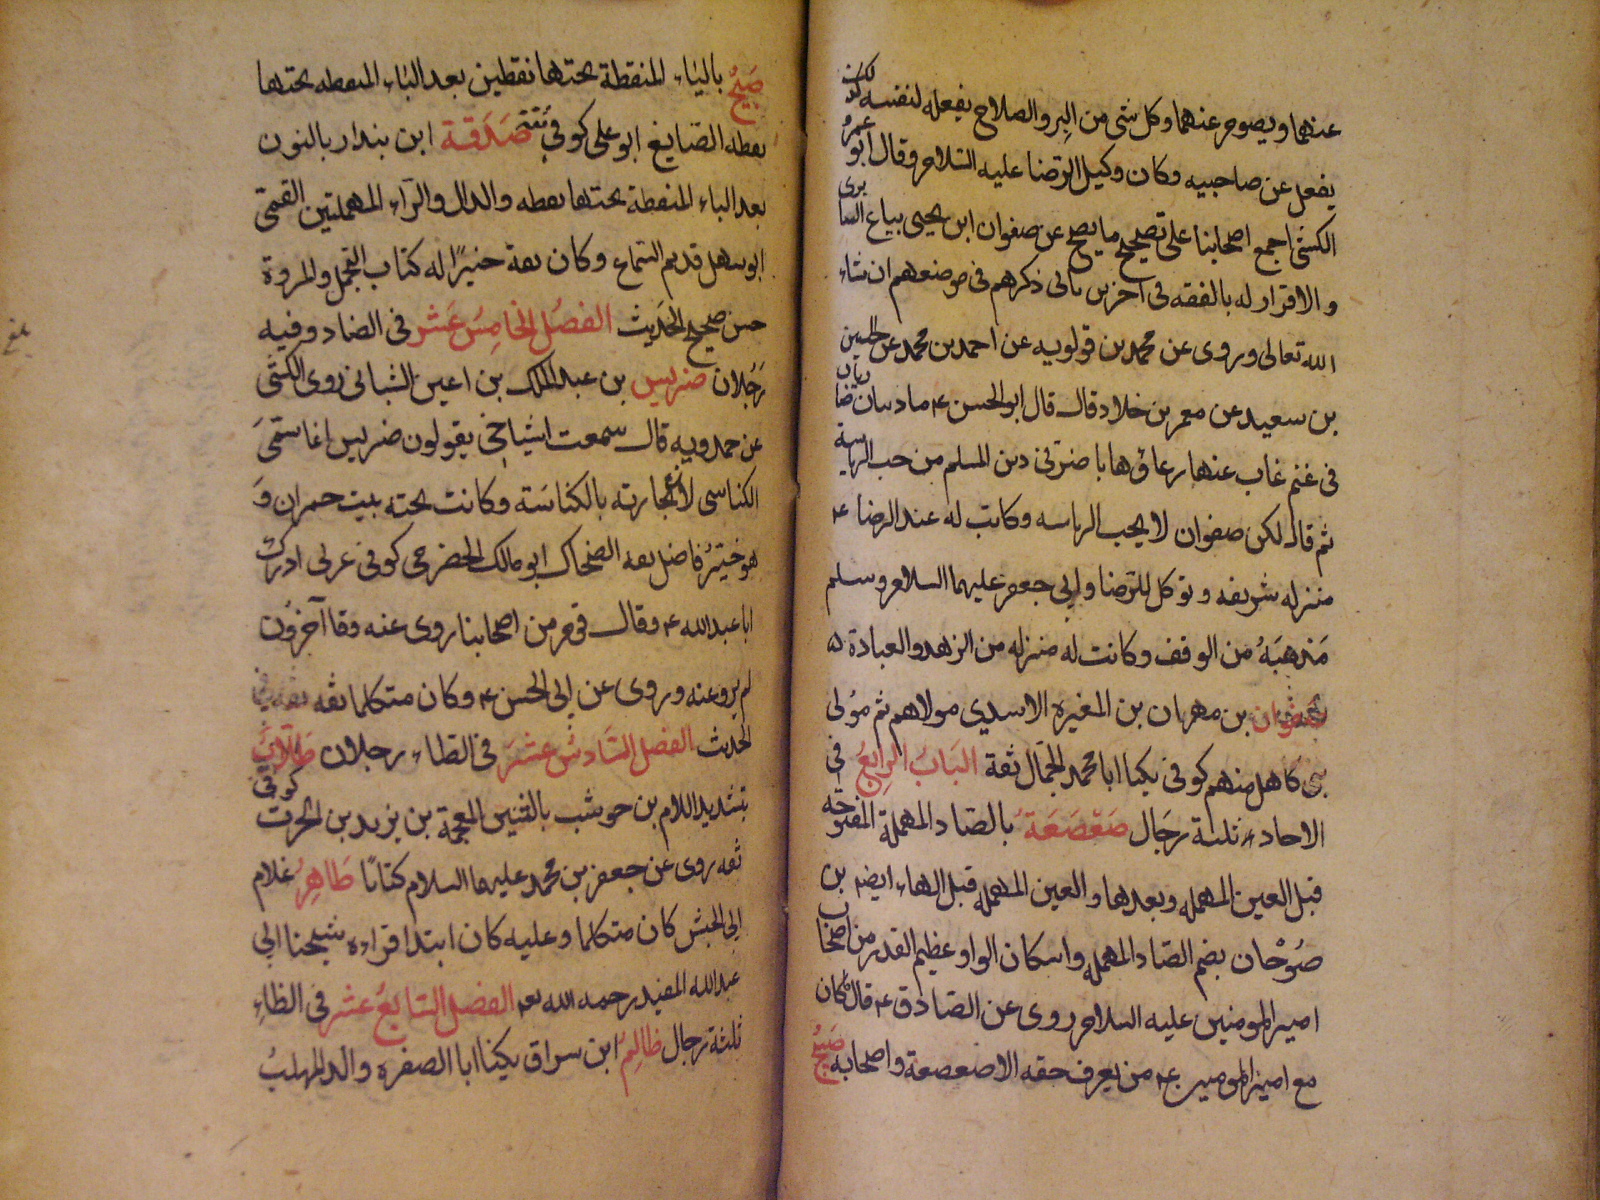 عنهما ويصوم عنهما وكل شى من البر والصلاح يفعله لنفسه كذلك
يفعل عن صاحبيه وكان وكيل الرضا عليه السلام وقال أبو عمرو
الكشى اجمع اصحابنا على تصحيح ما يصح عن صفوان ابن يحيى بياع السابرى
والاقرار له بالفقه فى آخرين ياتى ذكرهم فى موضعهم ان شاء
الله تعالى وروى عن محمد بن قولويه عن احمد بن محمد عن الحسين
بن سعيد عن معمر بن خلاد قال قال ابو الحسن ع ما ذيبان ضاريان
فى غنم غاب عنها رعاؤها باضر فى دين المسلم من حب الرياسة
ثم قال لكن صفوان لا يحب الرياسه وكانت له عند الرضا ع
منزله شريفه وتوكل للرضا وابى جعفر عليهما السلام وسلم
مَذهبَهُ من الوقف وكانت له منزله من الزهد والعبادة ه
صفوان بن مهران بن المغيرة الاسدي مولاهم ثم مولى
بنى كاهل منهم كوفى يكنا ابا محمد الجمال ثقة البَابُ الرابعُ فى
الاحاد ثلثة رجَال صَعْصَعَة بالصاد المهملة المفتوحة
قبل العين المهمله وبعدها والعين المهمله قبل الهاء ايضا بن
صُوْحان بضم الصاد المهمله واسكان الواو عظيم القدر من اصحاب
امير المومنين عليه السلام روى عن الصادق ع قال ما كان
مع امير المومنين ع من يعرف حقه الا صعصعة واصحابه صَبِيحُ
صَبِيحُ بالياء المنقطة تحتها نقطين بعد الباء المنقطه تحتها
نقطه الصايغ ابو على كوفى ثقة صَدَقَة ابن بندار بالنون
بعد الباء المنقطة تحتها نقطه والدال والرّاء المهملتين القمّى
ابو سهل قديم السماع وكان ثقة خيرًا له كتاب التجمل والمروة
حسن صحيح الحَدِيث الفصُل الخامِسْ عَشر فى الضاد وفيه
رَجُلان ضريس بن عبد الملك بن اعين الشيبانى روى الكشّى
عن حمدويه قال سمعت اشياخى يقولون ضريس انما سمّىَ
الكناسى لان تجارته بالكناسَة وكانت تحته بنت حمران وَ
هو خيّرُ فاضل ثقه الضحاك ابو مالك الحضرمى كوفى عربى ادرك
ابا عبد الله ع وقال قوم من اصحابنا روى عنه وقال آخرُون
لم يرو عنه وروى عن ابى الحسن ع وكان متكلما ثقه ثقه فى
الحديث الفصل السَّادسْ عَشَرَ فى الطاء رجلان طَلّابُ
بتشديد اللام بن حوشب بالشين المعجمة بن يزيد بن الحرث كوفى
ثقه روى عن جعفر بن محمد عليهما السلام كتابًا طَاهِرُ غلام
ابى الجيش كان متكلما وعليه كان ابتدا قراءه شيخنا ابى
عبد الله المفيد رحمه الله تعا الفصل السَّابعُ عشر فى الظاءِ
ثلثة رجال ظالِمُ ابن سراق يكنا ابا الصفره والد المهلب
بلغ